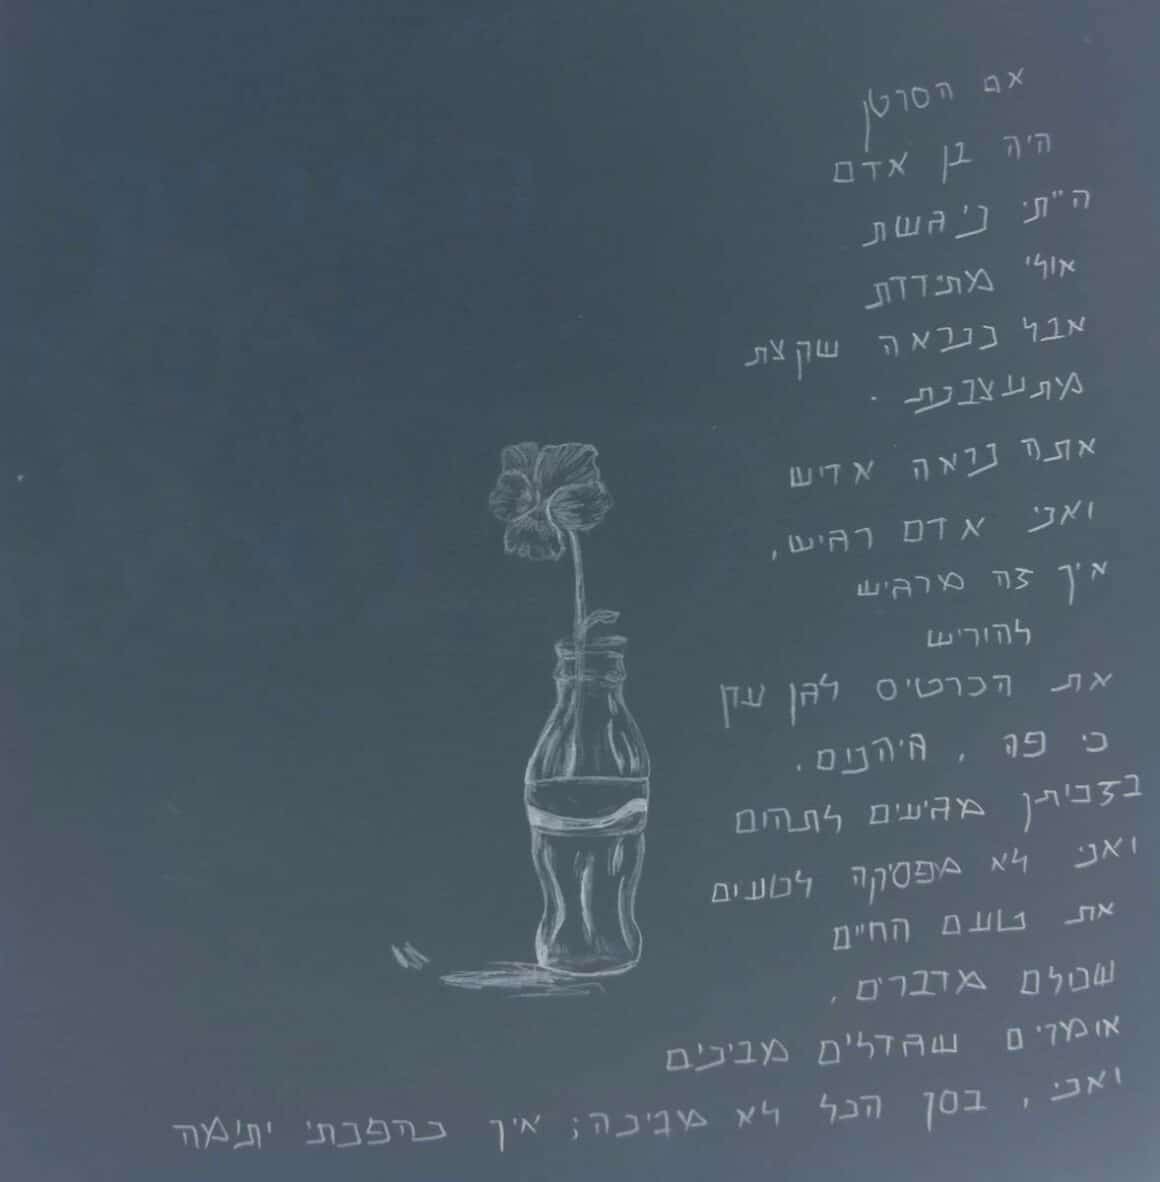 אם הסרטן
היה בן אדם
הייתי ניגשת
אולי מתידדת
אבל כנראה שקצת
מתעצבנת .
אתה נראה אדיש
ואני אדם רגיש,
איך זה מרגיש
להוריש
את הכרטיס לגן עדן
כי פה , גיהנום.
בזכותך מגיעים לתהום
ואני לא מפסיקה לטעום
את טעם החיים
שכולם מדברים,
אומרים שגדלים מבינים
ואני , בסך הכל לא מבינה; איך נהפכתי יתומה